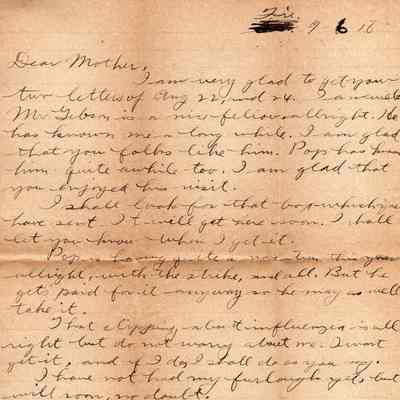 Fri. 9 6 18
Dear Mother,
I am very glad to get your
two letters of Aug 22, and 24.
Mr Gibson is a nice fellow allright. He
has known me a long while. I am glad
that you folks like him. Pop has known
him quite awhile too. I am glad that
you enjoyed his visit.
I shall look for that box which you
have sent. It will get here soon. I shall
let you know when I get it.
Pop is having quite a vacation this year
allright, with the strike, and all. But he
gets paid for it anyway so he may as well
take it.
That clipping about influenza is all
right but do not worry about me. I wont
get it, and if I do, I shall do as you say.
I have not had my furlough yet, but
will soon, no doubt.